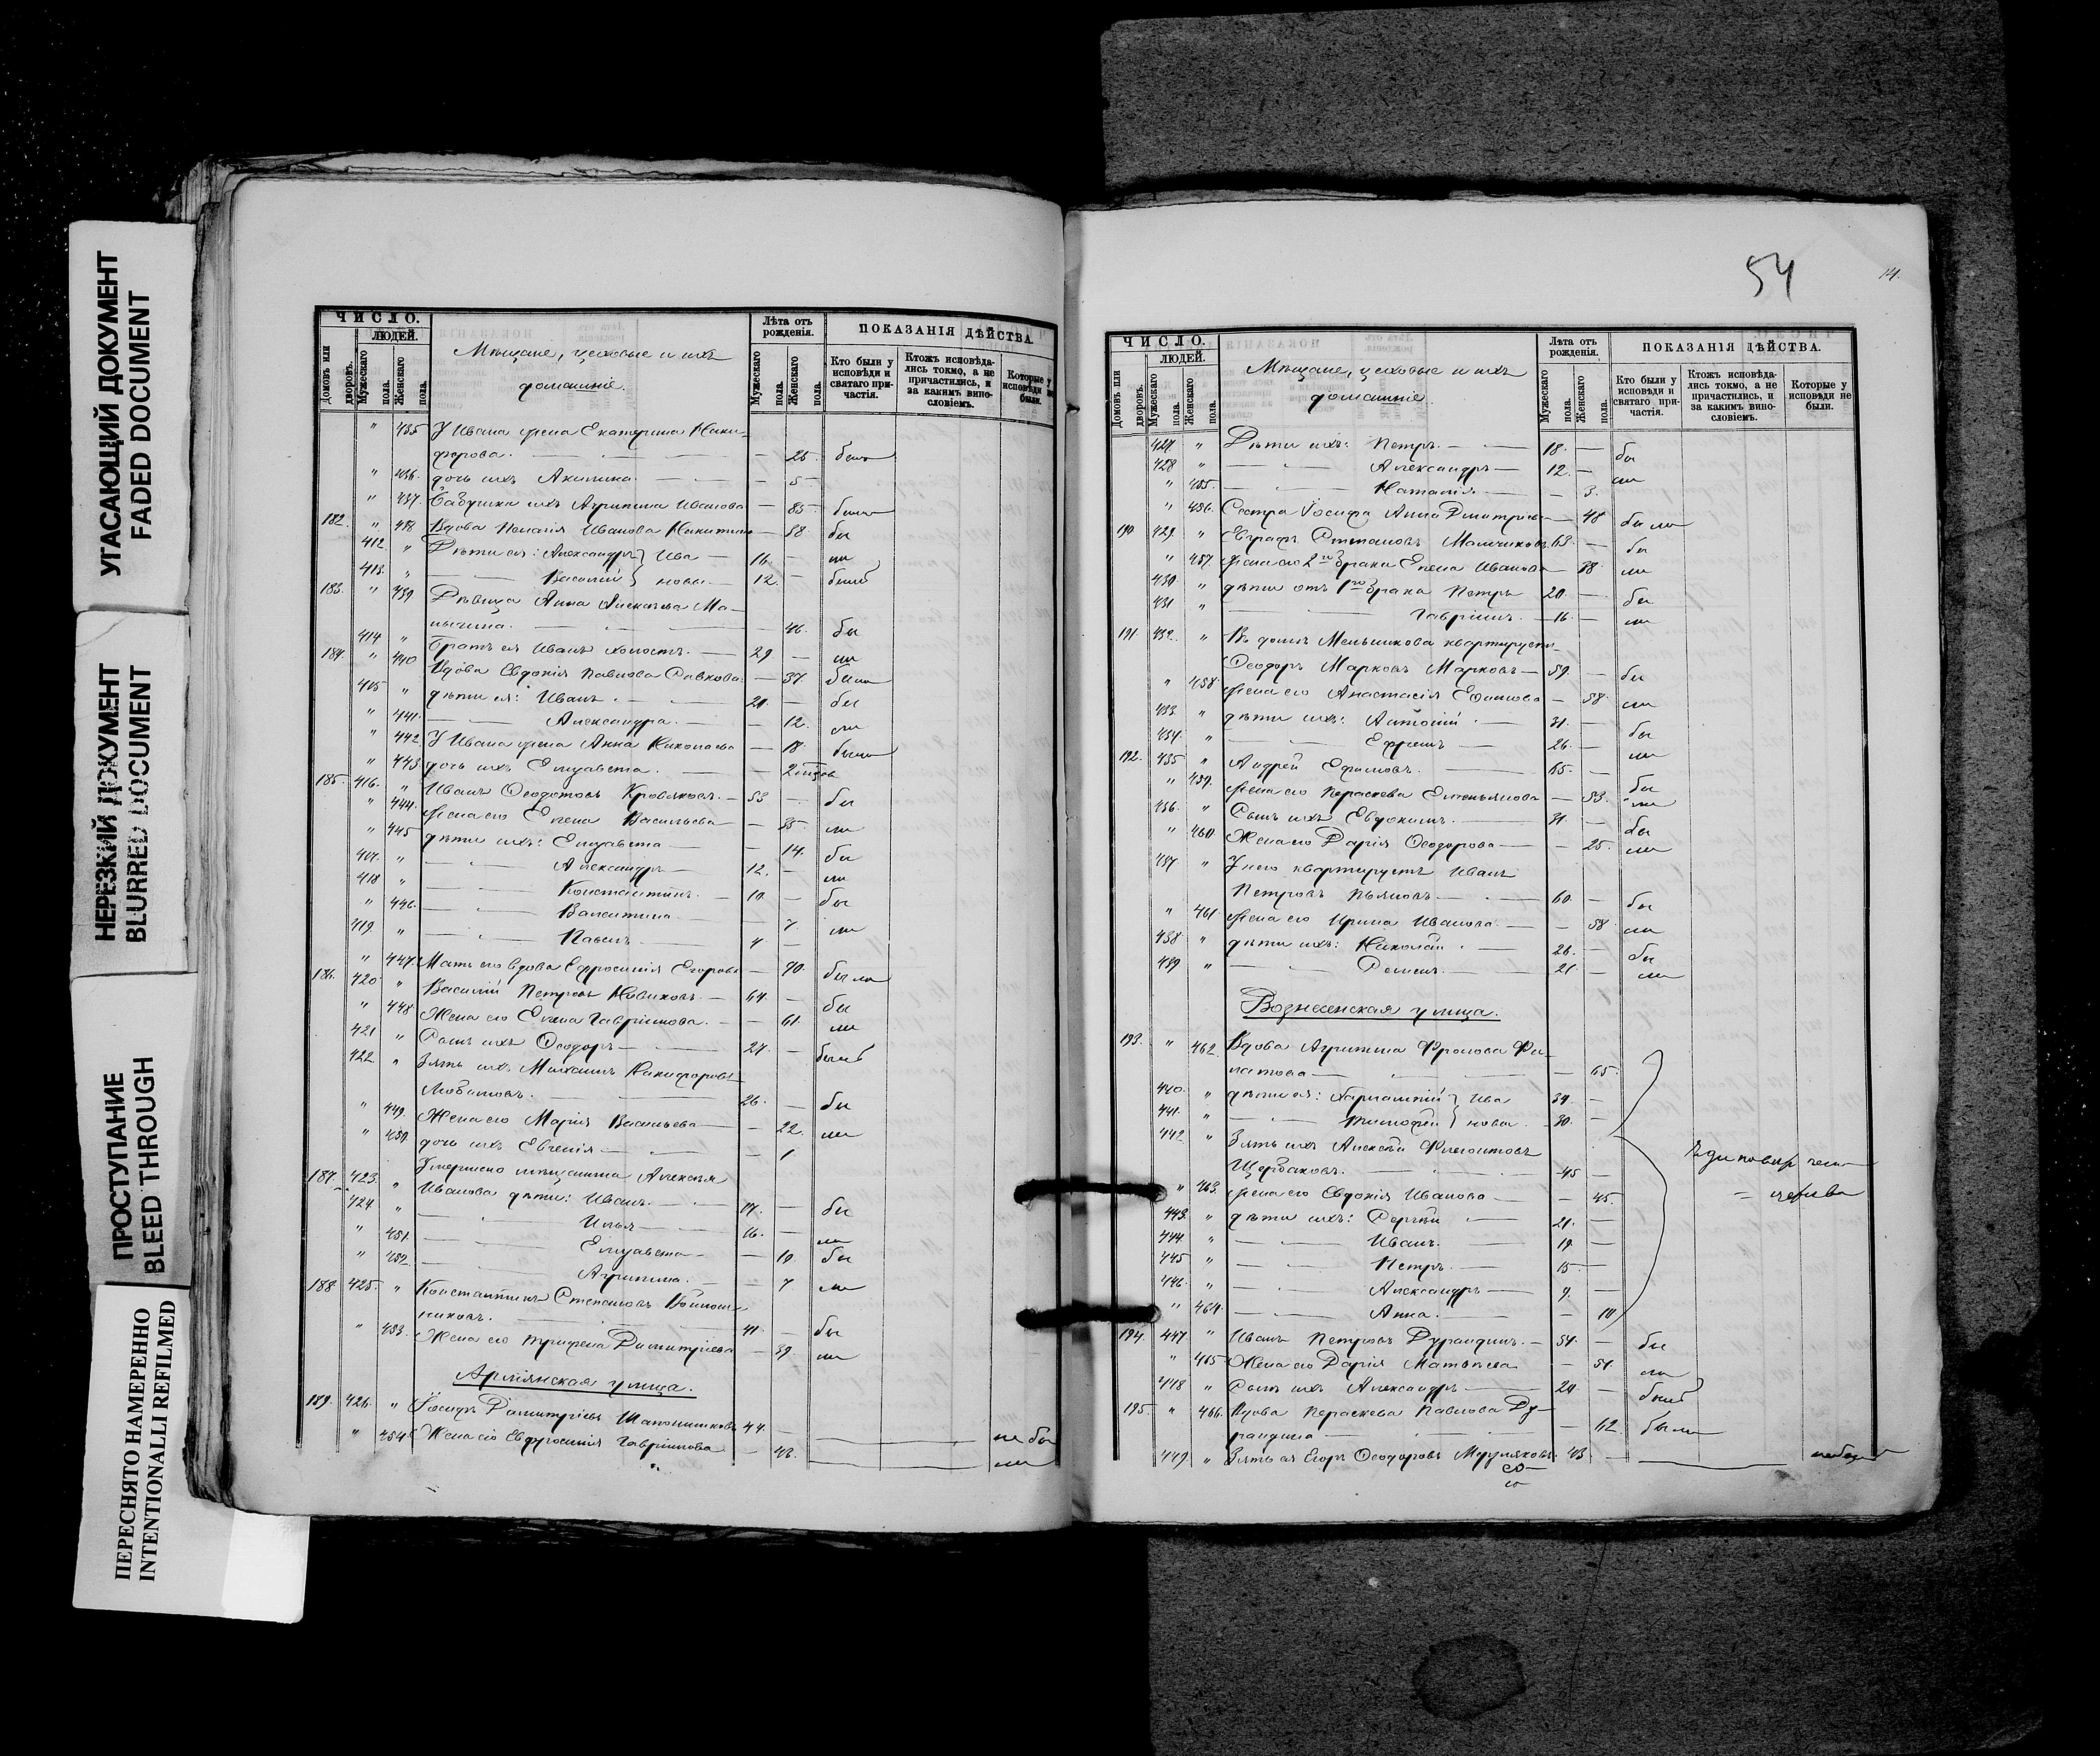 УГАСАЮЩИЙ ДОКУМЕНТ
FADED DOCUMENT
НЕРЕЗКИЙ ДОКУМЕНТ
BLURRED DOCUMENT
ПРОСТУПАНИЕ
BLEED THROUGH
ПЕРЕСНЯТО НАМЕРЕННО
INTENTIONALLI REFILMED
ЧИСЛО.
ЛЮДЕЙ.
Домовъ или дворовъ.
Мужескаго пола.
Женскаго пола.
Мѣщане, цеховые и ихъ
домашніе.
Лѣта отъ рожденія.
Мужескаго пола.
Женскаго пола.
ПОКАЗАНІЯ ДѢЙСТВА.
Кто были у исповѣди и святаго причастія.
Ктожъ исповѣда-лись токмо, а не причастились, и за какимъ вино-словіемъ.
Которые у исповѣди не были.
" 435 У Ивана жена Екатерина Ники-
форова. — 25 была
" 436 дочь ихъ Акилина — 5
" 437 Бабушка ихъ Агрипина Иванова — 85 была
182. " 438 Вдова Пелагія Иванова Никитина — 58 бы
412 " Дѣти ея: Александръ } Ива 14 — ли
413 " Василій } новы 12 — былъ
183. " 439 Дѣвица Анна Алексѣева Ма-
— 46 бы
414 " Братъ ея Иванъ холостъ. 29 — ли
184. " 440 Вдова Евдокія Павлова Савкова — 37 была
415 " дѣти ея: Иванъ 21 — бы
" 441 Александра — 12 ли
" 442 У Ивана жена Анна Николаева — 18 была
" 443 дочь ихъ Елизавета — 2
185. 416 " Иванъ Ѳеодотовъ Кровяковъ 53 — бы
" 444 Жена его Елена Васильева — 35 ли
" 445 дѣти ихъ: Елизавета — 14 бы
417 " Александръ 12 — ли
418 " Константинъ 10 — бы
" 446 Валентина — 7 ли
419 " Павелъ 4 —
" 447 Мать его вдова Ефросинія Егорова — 70 была
186. 420 " Василій Петровъ Новиковъ 64 — бы
" 448 Жена его Елена Гавріилова — 61 ли
421 " Сынъ ихъ Ѳеодоръ 27 — былъ
422 " Зять ихъ Михаилъ Никифоровъ
Любимовъ 26 — бы
" 449 Жена его Марія Васильева — 22 ли
" 450 дочь ихъ Евгенія — 1
Умершаго мѣщанина Алексѣя
187. 423 " Иванова дѣти: Иванъ 17 — бы
424 " Илья 16 — ли
" 451 Елизавета — 10 бы
" 452 Агрипина — 7 ли
188. 425 " Константинъ Степановъ Войнош-
никовъ. 41 — бы
" 453 Жена его Трифена Димитріева — 39 ли
Армянская улица.
189. 426 " Іосифъ Димитріевъ Шапошниковъ 44 — не бы
" 454 Жена его Евфросинія Гавріилова — 43 ли
54
14.
ЧИСЛО.
ЛЮДЕЙ.
Домовъ или дворовъ.
Мужескаго пола.
Женскаго пола.
Мѣщане, цеховые и ихъ
домашніе.
Лѣта отъ рожденія.
Мужескаго пола.
Женскаго пола.
ПОКАЗАНІЯ ДѢЙСТВА.
Кто были у исповѣди и святаго при-частія.
Ктожъ исповѣда-лись токмо, а не причастились, и за какимъ вино-словіемъ.
Которые у исповѣди не были.
427 " Дѣти ихъ: Петръ 18 — бы
428 " Александръ 12 — ли
" 455 Наталія — 3
" 456 Сестра Іосифа Анна Дмитріева — 48 была
190 429 " Евграфъ Степановъ Мальчиковъ 63 — бы
" 457 Жена его 2го брака Елена Иванова — 38 ли
430 " дѣти отъ 1го брака Петръ 20 — бы
431 " Гавріилъ 16 — ли
191. 432 " Въ домѣ Меньшикова квартируетъ
Ѳеодоръ Марковъ Марковъ 59 — бы
" 458 Жена его Анастасія Ефимова — 58 ли
433 " дѣти ихъ: Антоній 31 — бы
434 " Ефремъ 26 — ли
192. 435 " Андрей Ефимовъ 65 — бы
" 459 Жена его Параскева Емельянова — 53 ли
436 " Сынъ ихъ Евдокимъ 31 — бы
" 460 Жена его Дарія Ѳеодорова — 25 ли
437 " У него квартируетъ Иванъ
Петровъ Пьяновъ 60 — бы
" 461 Жена его Ирина Иванова — 58 ли
438 " дѣти ихъ: Николай 26 — бы
439 " 21 — ли
Вознесенская улица.
193. " 462 Вдова Агрипина Фролова Фи-
латова — 65
440 " дѣти ея: Харлампій } Ива 34 —
441 " Тимофей } новы 30 —
442 " Зять ихъ Алексѣй Филиповъ
Щербаковъ 45 —
" 463 Жена его Евдокія Иванова — 45
443 " дѣти ихъ: Сергѣй 21 —
444 " Иванъ 19 —
445 " Петръ 15 —
446 " Александръ 9 —
" 464 Анна — 10
194. 447 " Иванъ Петровъ Дурандинъ 54 — бы
" 465 Жена его Дарія Матвѣева — 51 ли
448 " Сынъ ихъ Александръ 24 — былъ
195. " 466 Вдова Параскева Павлова Ду-
рандина — 62 была
449 " Зять ея Егоръ Ѳеодоровъ 43 — не былъ